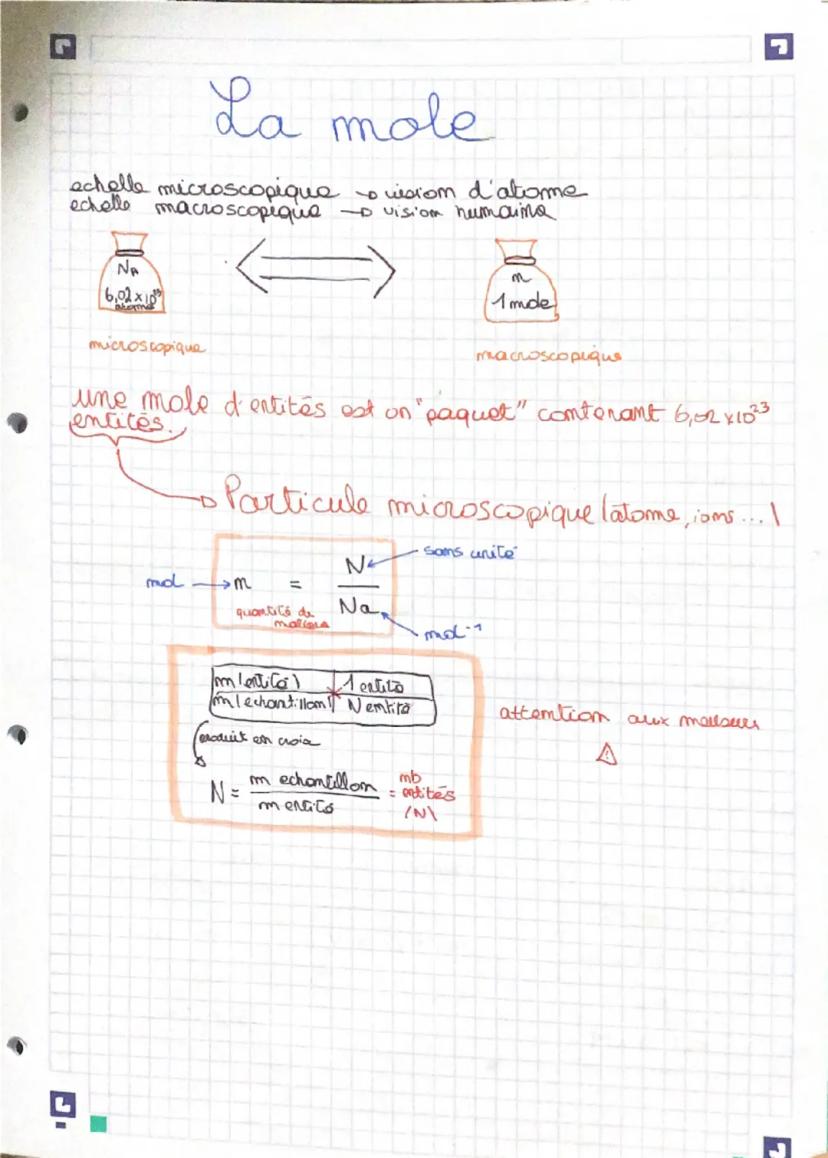 La mole
echelle microscopique → vision d'atome
echelle macroscopique → vision humaine
NA
6,02 x 10²³
atomes
n
1 mole
microscopique
macroscopique
une mole d'entités est un "paquet" contenant 6,02 x 10²³
entités.
→ Particule microscopique (atome, ions...)
sans unité
mol → n = N / Na
quantité de
matière
mol⁻¹
m (entité) | 1 entité
m (echantillon) | N entité
produit en croix
N = m echantillon / m entité = nb entités (N)
attention aux